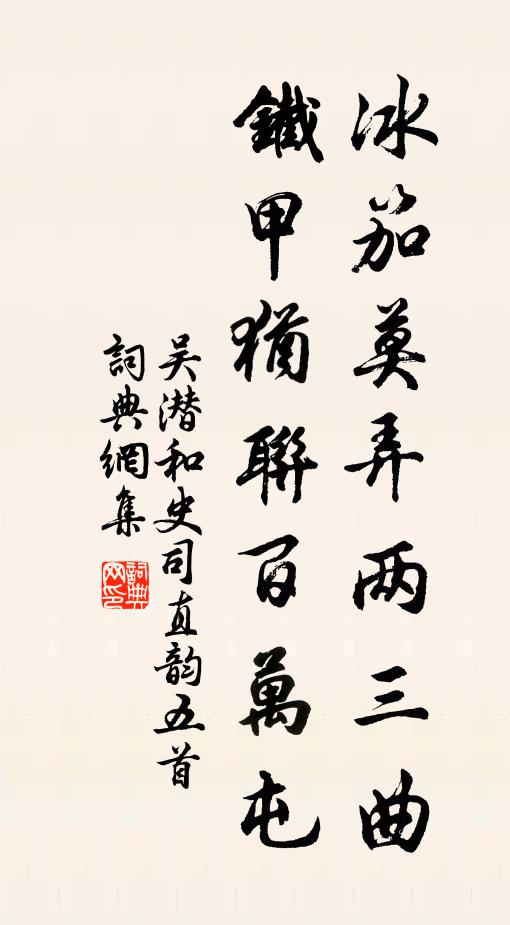 冰笳莫弄两三曲
鐵甲猶聯百萬屯
吴潜和史司直韵五首
詞典網集
詞典
网印